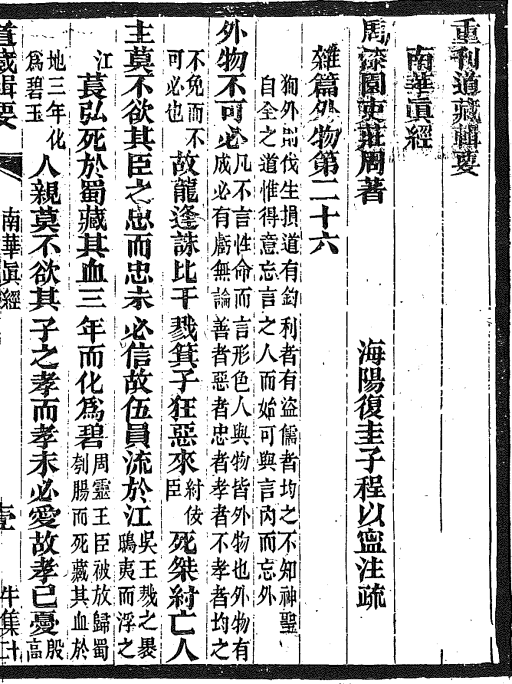 重刊道藏輯要
南華真經
周漆園吏莊周著　海陽復圭子程以寧注疏
雜篇外物第二十六
狥外則伐生損道有釣利者有盜儒者均之不知神聖
自全之道惟得意忘言之人而始可與言內而忘外
外物不可必凡不言性命而言形色人與物皆外物也外物有
成必有虧無論善者惡者忠者孝者不孝者均之
不免而不
可必也故龍逢誅比干戮箕子狂惡來紂佞
臣死桀紂亡人
主莫不欲其臣之忠而忠未必信故伍員流於江吳王戮之裹
鴟夷而浮之
江萇弘死於蜀藏其血三年而化為碧周靈王臣被放歸蜀
刳腸而死藏其血於
地三年化
為碧玉人親莫不欲其子之孝而孝未必愛故孝已憂殷
高
道藏輯要
南華真經
壹
牛集